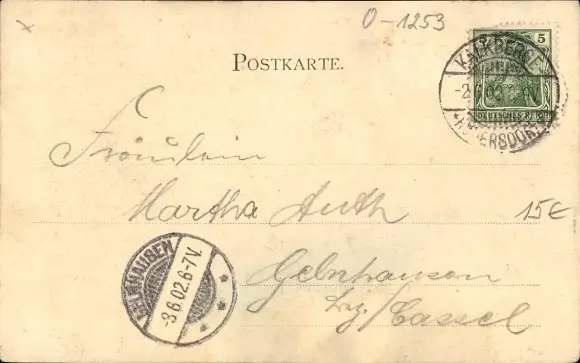 O-1253
POSTKARTE.
5
DEUTSCHES REICH
KALKBERGE
-2.6.02
Fräulein
Martha Auth
15€
Gelnhausen
Bez/Cassel
GELNHAUSEN
-3.6.02.6-7V.